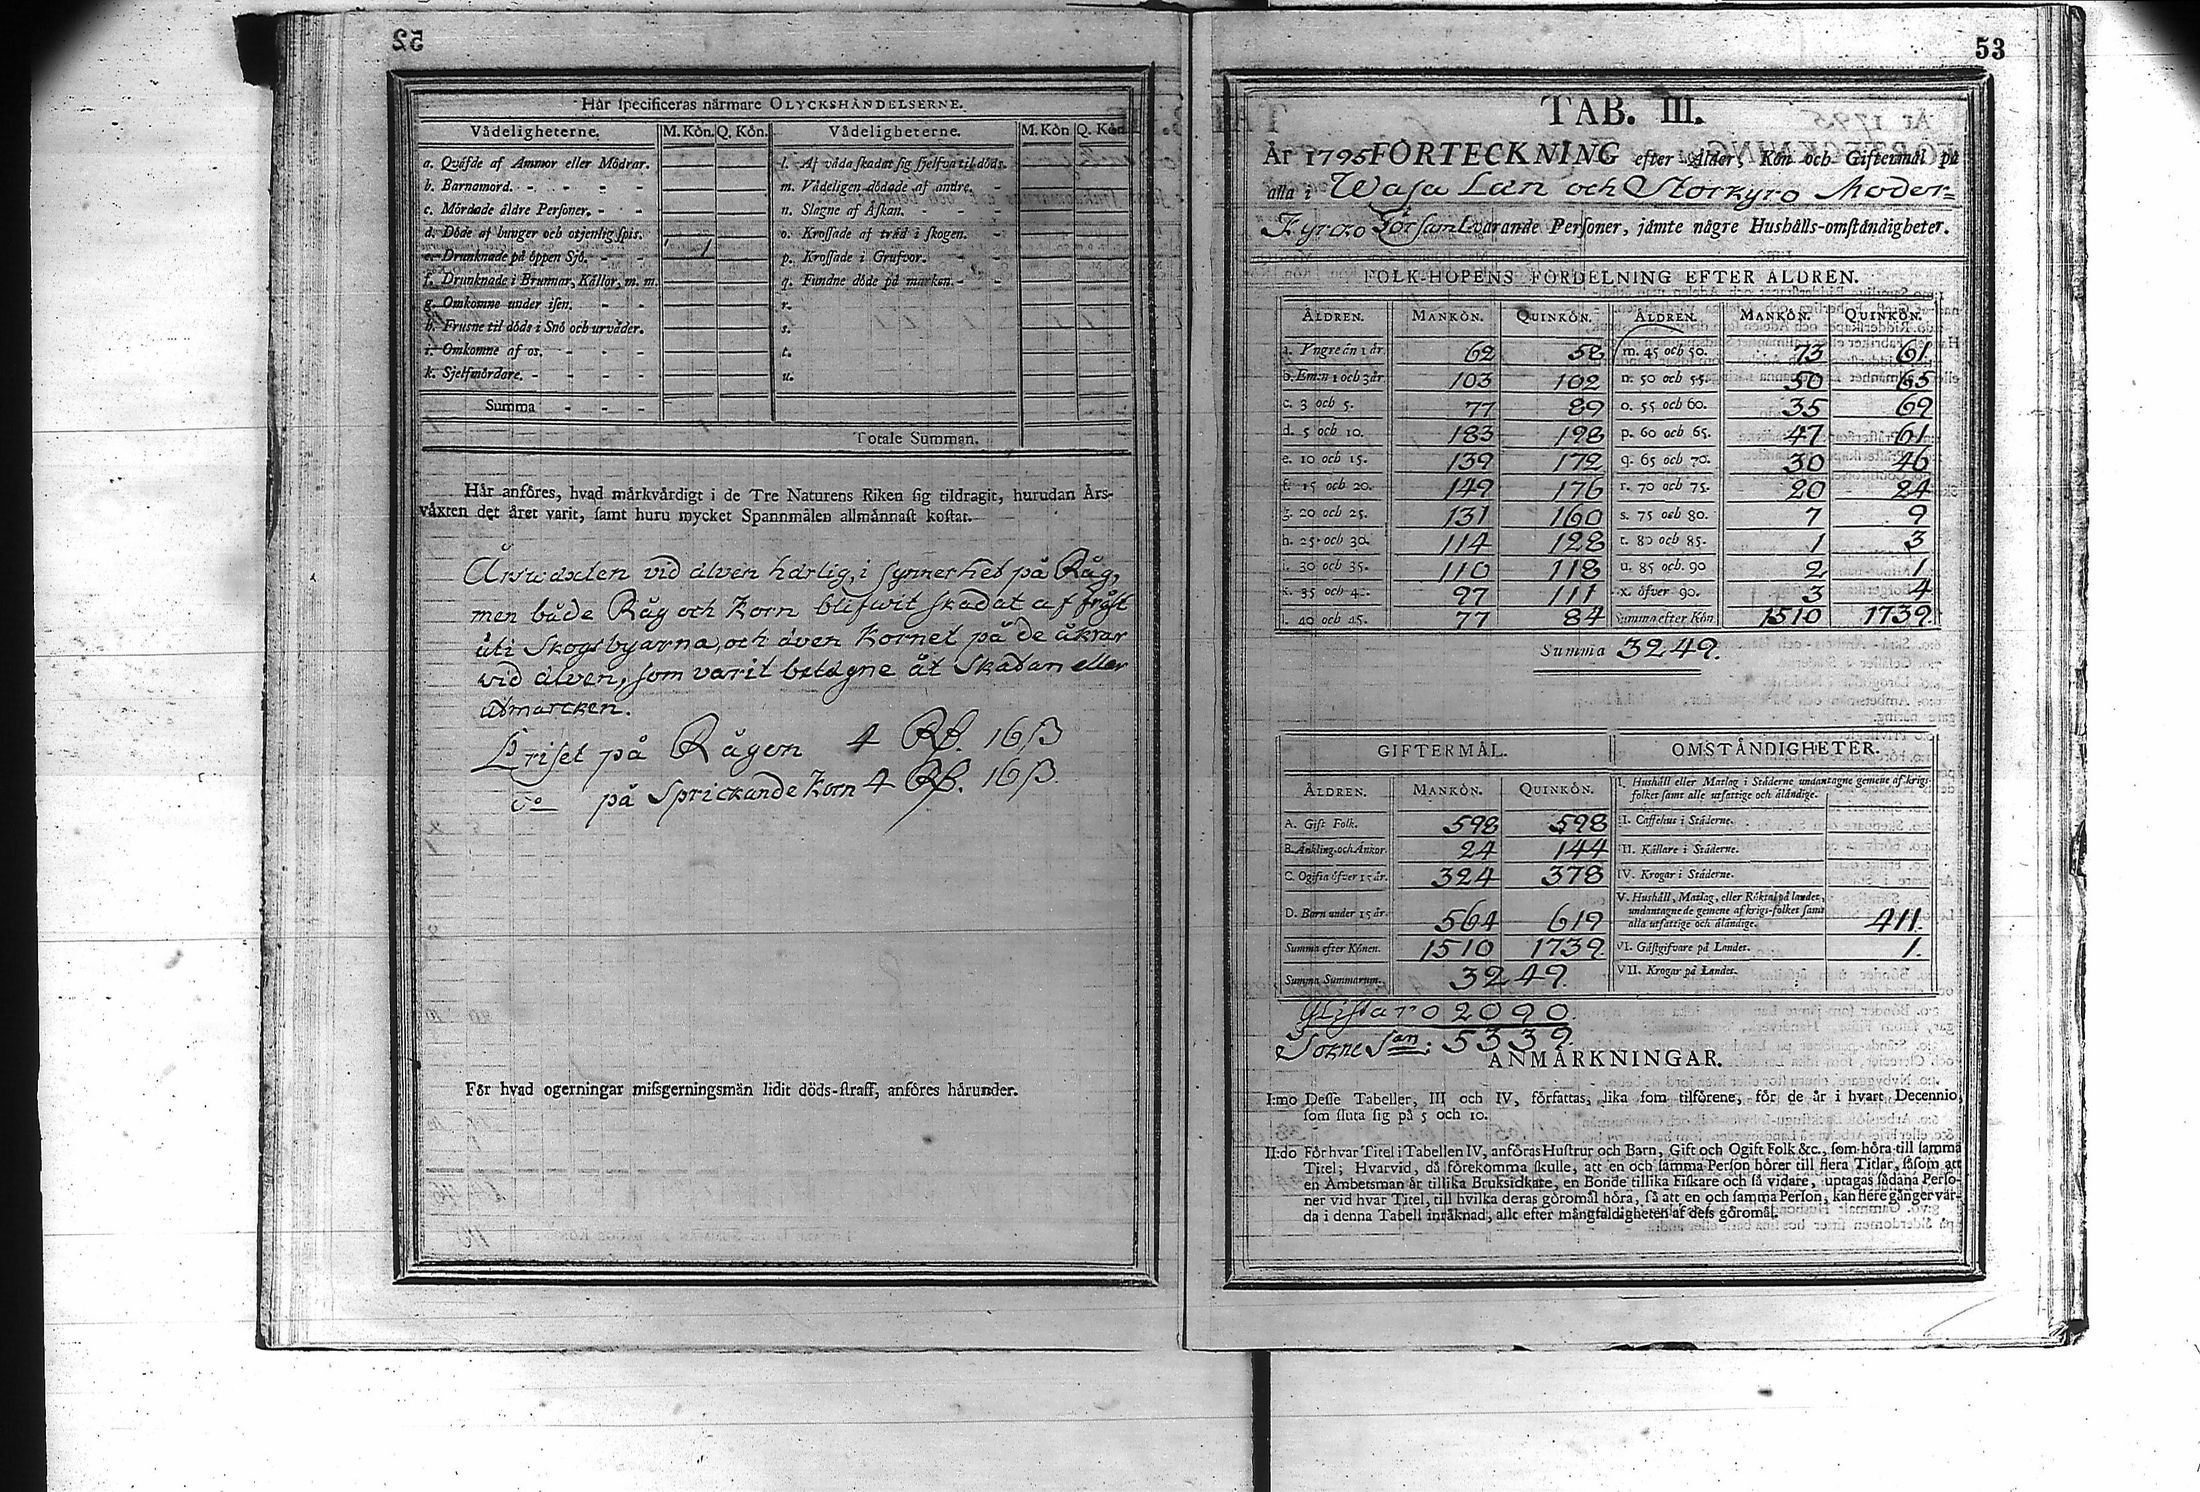 52
Hår specificeras nårmare OLYCKSHÅNDELSERNE.
Vådeligheterne. M. Kön. Q. Kön. Vådeligheterne. M. Kön Q. Kön
a. Quåfde af Ammor eller Mödrar. l. Af våda skadat sig sjelfva til döds.
b. Barnamord. - - - - m. Vådeligen dödade af andre. -
c. Mördade åldre Personer. - - n. Slagne af Åskan. - - -
d. Döde af hunger och otjenlig spis. o. Krossade af tråd i skogen. -
e. Drunknade på öppen Sjö. - - 1 p. Krossade i Grufvor. - -
f. Drunknade i Brunnar, Kållor, m. m. q. Fundne döde på marken. - -
g. Omkomne under isen. - - r.
h. Frusne til döds i Snö och urvåder. s.
i. Omkomne af os. - - - t.
k. Sjelfmördare. - - - - u.
Summa - - -
Totale Summan.
Hår anföres, hvad mårkvårdigt i de Tre Naturens Riken sig tildragit, hurudan Års-
våxten det året varit, samt huru mycket Spannmålen allmånnast kostat.
Årswäxten vid älven härlig, i synnerhet på Råg,
men både Råg och Korn blifwit skadat af fråst
uti Skogsbyarna, och även Kornet på de åkrar
vid älven, som varit belägne åt Skatan eller
utmarcken.
Priset på Rågen 4 Rd. 16 ß
do på Sprickande Korn 4 Rd. 16 ß.
För hvad ogerningar missgerningsmän lidit döds-straff, anföres hårunder.
53
TAB. III.
År 1795 FÖRTECKNING efter Ålder, Kön och Giftermål på
alla i Wasa Län och Storkyro Moder=
Kyrko Församl. varande Personer, jåmte någre Hushålls-omståndigheter.
FOLK-HOPENS FÖRDELNING EFTER ÅLDREN.
ÅLDREN. MANKÖN. QUINKÖN. ÅLDREN. MANKÖN. QUINKÖN.
a. Yngre ån 1 år. 62 58 m. 45 och 50. 73 61
b. Em:n 1 och 3 år. 103 102 n. 50 och 55. 50 65
c. 3 och 5. 77 89 o. 55 och 60. 35 69
d. 5 och 10. 183 198 p. 60 och 65. 47 61
e. 10 och 15. 139 172 q. 65 och 70. 30 46
f. 15 och 20. 149 176 r. 70 och 75. 20 24
g. 20 och 25. 131 160 s. 75 och 80. 7 9
h. 25 och 30. 114 128 t. 80 och 85. 1 3
i. 30 och 35. 110 118 u. 85 och 90 2 1
k. 35 och 40. 97 111 x. öfver 90. 3 4
l. 40 och 45. 77 84 Summa efter Kön 1510 1739.
Summa 3249.
GIFTERMÅL. OMSTÅNDIGHETER.
ÅLDREN. MANKÖN. QUINKÖN. I. Hushåll eller Matlag i Ståderne undantagne gemene af krigs-
folket samt alle utfattige och ålåndige.
A. Gift Folk. 598 598 II. Caffehus i Ståderne.
B. Ånkling. och Ånkor. 24 144 III. Kållare i Ståderne.
C. Ogifta öfver 15 år. 324 378 IV. Krogar i Ståderne.
D. Barn under 15 år. 564 619 V. Hushåll, Matlag, eller Röktal på landet, undantagne de gemene af krigs-folket samt alla utfattige och ålåndige. 411.
Summa efter Könen. 1510 1739. VI. Gåstgifvare på Landet. 1.
Summa Summarum. 3249. VII. Krogar på Landet.
Ylistaro 2090.
5339.
ANMÅRKNINGAR.
I:mo Desse Tabeller, III och IV, författas, lika som tilförene, för de år i hvart Decennio,
som sluta sig på 5 och 10.
II:do För hvar Titel i Tabellen IV, anföras Hustrur och Barn, Gift och Ogift Folk &c., som höra till samma
Titel; Hvarvid, då förekomma skulle, att en och samma Person hörer till flera Titlar, såsom att
en Åmbetsman år tillika Bruksidkare, en Bonde tillika Fiskare och så vidare, uptagas sådana Perso-
ner vid hvar Titel, till hvilka deras göromål höra, så att en och samma Person, kan flere gånger var-
da i denna Tabell inråknad, allt efter mångfaldigheten af dess göromål.